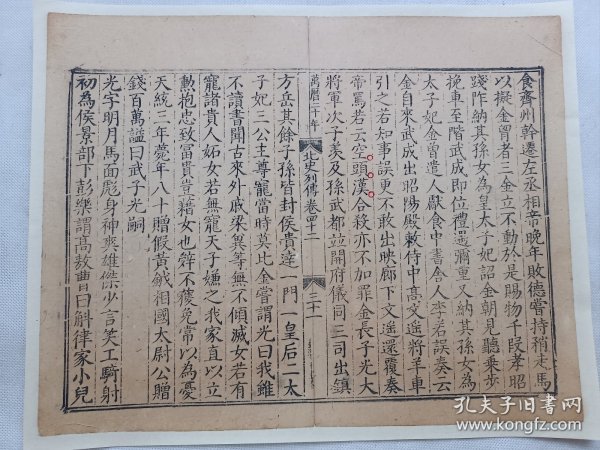 食齊州幹遷左丞相帝晚年敗德嘗持稍走馬
以擬金胷者三金立不動於是賜物千段孝昭
踐阼納其孫女為皇太子妃詔金朝見聽乗步
挽車至階武成即位禮遇彌重又納其孫女為
太子妃金曾遣人獻食中書舍人李若誤奏云
金自来武成出昭陽殿敕侍中高文遥將羊車
引之若知事誤更不敢出映廊下文遥還覆奏
帝罵若云空頭漢合殺亦不加罪金長子光大
將軍次子羨及孫武都並開府儀同三司出鎮
萬曆二十年
北史列傳卷四十二
三十一
方岳其餘子孫皆封侯貴達一門一皇后二太
子妃三公主尊寵當時莫比金嘗謂光曰我雖
不讀書聞古来外戚梁冀等無不傾滅女若有
寵諸貴人妬女若無寵天子嫌之我家直以立
勲抱忠致冨貴豈藉女也辤不獲免常以為憂
天統三年薨年八十贈假黃鉞相國太尉公贈
錢百萬謚曰武子光嗣
光字明月馬面彪身神爽雄傑少言笑工騎射
初為侯景部下彭樂謂高敖曹曰斛律家小兒
孔夫子旧書网
www.kongfz.com